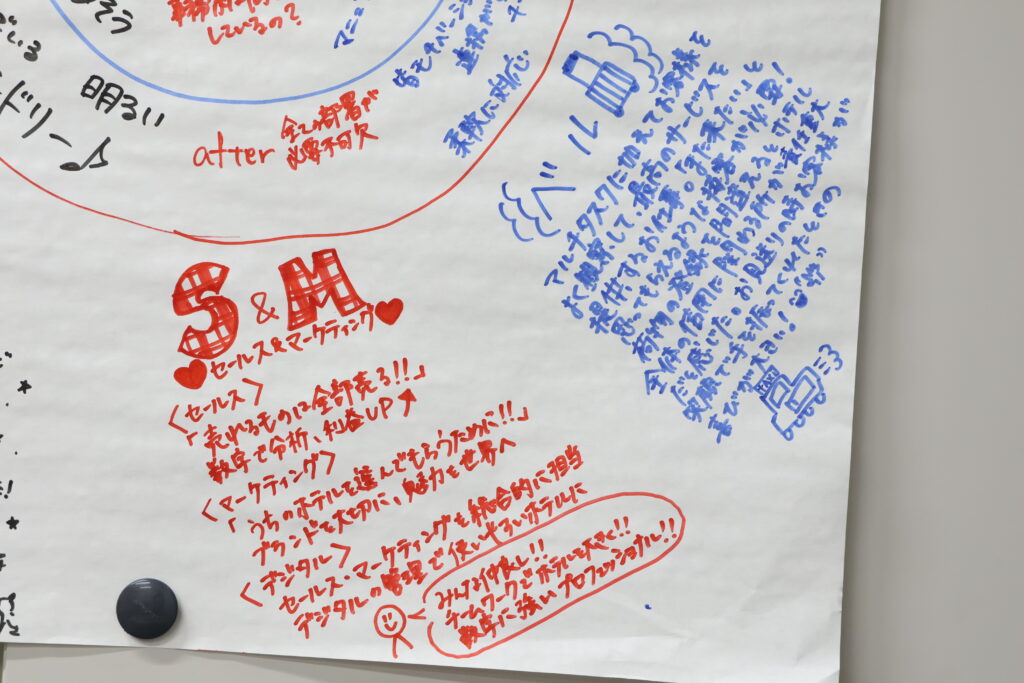 そう
いる
ドリー♪
明るい
しているの?
マニュ
皆モチベーション
連携が
柔軟に対応
after 全ての部署が
必要不可欠
S & M
♥セールス&マーケティング♥
<セールス>
「売れるものは全部売る!!」
数字で分析、利益UP↑
<マーケティング>
「うちのホテルを選んでもらうために!!」
ブランドを大切に、魅力を世界へ
<デジタル>
セールス・マーケティングを統合的に担当
デジタルの管理で使いやすいホテルに
みんな仲良し!!
チームワークでホテルを大きく!!
数字に強いプロフェッショナル!!
ベル
マルチタスクに加えてお客様を
よく観察して、最高のサービスを
提供するお仕事。「また来たい」と
思ってもらえるような接客が必要!
荷物の登録を間違えるとホテル
全体の信用に関わる所が責任重大
だと感じた。お見送りの時お客様が
笑顔で手を振ってくれたときの
喜びが大きい!
TAXI